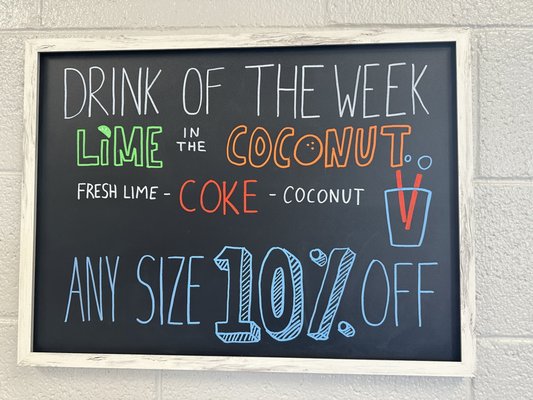 DRINK OF THE WEEK
LiME IN THE COCONUT
FRESH LIME - COKE - COCONUT
ANY SIZE 10% OFF